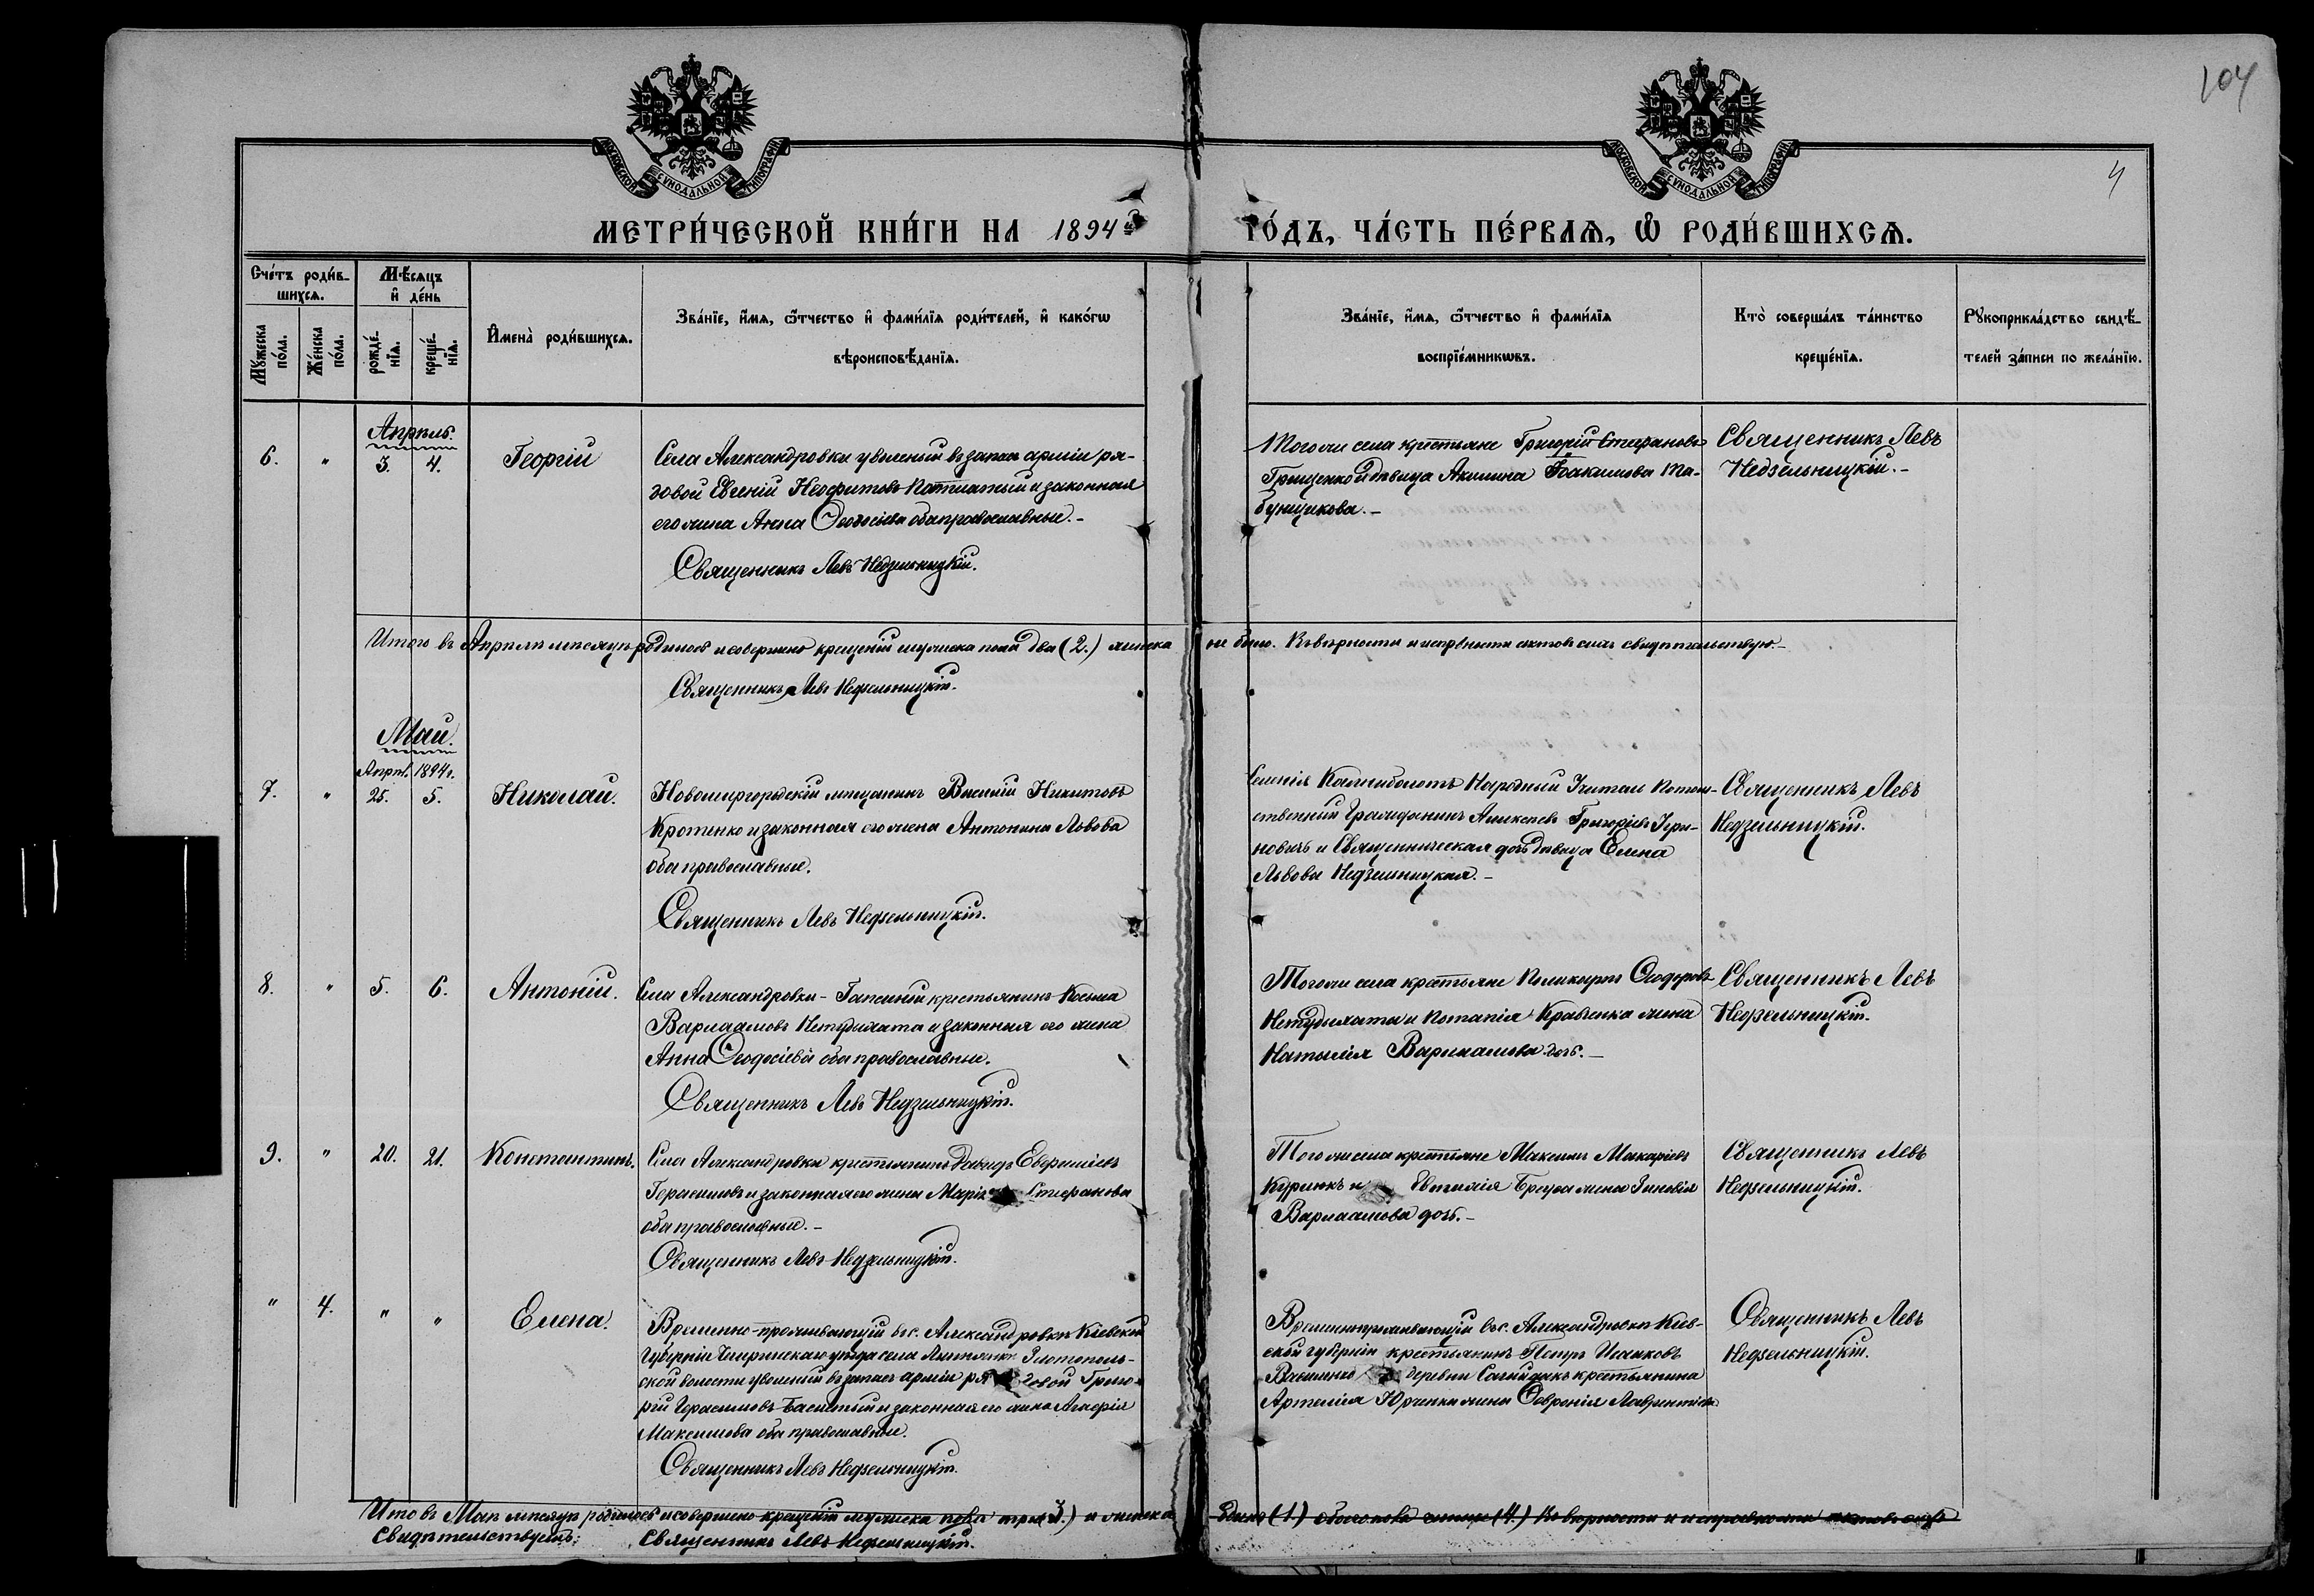 104
4
МОСКОВСКОЙ СУНОДАЛЬНОЙ ТИПОГРАФІИ
МОСКОВСКОЙ СУНОДАЛЬНОЙ ТИПОГРАФІИ
МЕТРИ́ЧЕСКОЙ КНИ́ГИ НА 1894й
ГО́ДЪ, ЧА́СТЬ ПЕ́РВАѦ, Ѿ РОДИ́ВШИХСѦ.
Сче́тъ роди́в-
шихсѧ.
Мѣ́сѧцъ
и҆ де́нь
Мꙋ́жеска
по́ла.
Же́нска
по́ла.
рожде́-
нїѧ.
креще́-
нїѧ.
И҆мена̀ роди́вшихсѧ.
Зва́нїе, и҆́мѧ, ѻ҆́тчество и҆ фами́лїѧ роди́телей, и҆ како́гѡ
вѣроисповѣ́данїѧ.
Зва́нїе, и҆́мѧ, ѻ҆́тчество и҆ фами́лїѧ
воспрїе́мникѡвъ.
Кто̀ соверша́лъ та́инство
креще́нїѧ.
Рꙋкоприкла́дство свидѣ́-
телей за́писи по жела́нїю.
Апрѣль.
6. " 3. 4. Георгій
Села Александровки уволеный въ запасъ арміи ря-
довой Евгеній Неофитовъ и законная
его жена Анна Ѳеодосіева оба православные.-
Священникъ Левъ Недзельницкій.
Того же села крестьяне Григорій Стефановъ
Грищенко и дѣвица Акилина Іоакимова Та-
бунщикова.-
Священникъ Левъ
Недзельницкій.-
Итого въ Апрѣлѣ мѣсяцѣ родилось и совершено крещеній мужеска пола два (2.) женска не было. Въ вѣрности и исправности актовъ сихъ свидѣтельствую.-
Священникъ Левъ Недзельницкій.
Май.
Апрѣл. 1894г.
7. " 25. 5. Николай.
Новомиргородскій мѣщанинъ Василій Никитовъ
Кротенко и законная его жена Антонина Львова
оба православные.
Священникъ Левъ Недзельницкій.
Селенія Камниболотъ Народный Учитель Потом-
ственный Гражданинъ Алексѣй Григорьевъ
и Священническая дочь дѣвица Елена
Львова Недзельницкая.-
Священникъ Левъ
Недзельницкій.
8. " 5. 6. Антоній.
Села Александровки крестьянинъ Косьма
Варлаамовъ Нетудыхата и законная его жена
Анна Ѳеодосіева оба православные.
Священникъ Левъ Недзельницкій.
Того же села крестьяне Поликарпъ Ѳеодоровъ
Нетудыхата и Потапія Кравченка жена
Наталія Варлаамова дочь.-
Священникъ Левъ
Недзельницкій.
9. " 20. 21. Константинъ.
Села Александровки крестьянинъ Давидъ
и законная его жена Марія Стефанова
оба православные.-
Священникъ Левъ Недзельницкій.
Того же села крестьяне Максимъ Макаріевъ
и Евѳимія жена Зиновія
Варлаамова дочь.-
Священникъ Левъ
Недзельницкій.
" 4. " " Елена.
Временно-проживающій въ с. Александровкѣ Кіевской
Губерніи Чигиринскаго уѣзда села Златополь-
ской волости уволеный въ запасъ арміи рядовой Григо-
рій Герасимовъ и законная его жена Гликерія
Максимова оба православные.
Священникъ Левъ Недзельницкій.
Временно проживающій въ с. Александровкѣ Кіев-
ской губерніи крестьянинъ Петръ Исааковъ
деревни крестьянина
Артемія Юрченка жена Ѳевронія Лаврентіева
Священникъ Левъ
Недзельницкій.
Итого въ Маѣ мѣсяцѣ родилось и совершено крещеній мужеска пола три (3.) и женска одно (1.) обоего пола четыре (4.) Въ вѣрности и исправности актовъ сихъ
Свидѣтельствуетъ: Священникъ Левъ Недзельницкій.